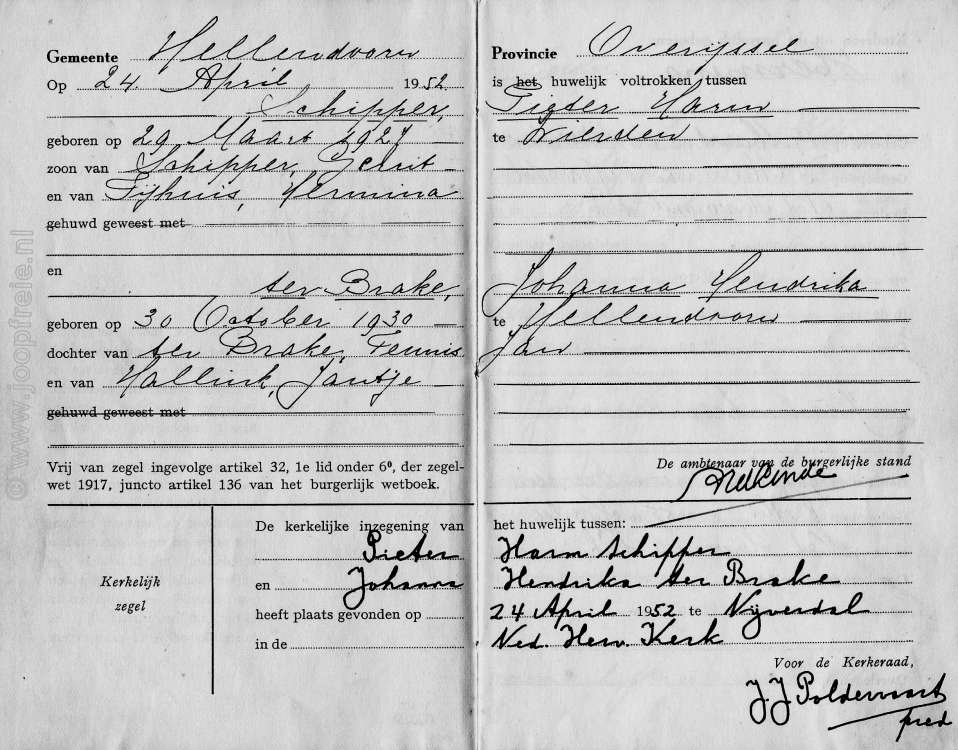 Gemeente Hellendoorn Provincie Overijssel
Op 24 April 1952 is het huwelijk voltrokken tussen
Schipper, Pieter Harm
geboren op 29 Maart 1927 te Wierden
zoon van Schipper, Gerrit
en van Tijhuis, Hermina
gehuwd geweest met
en
ter Brake, Johanna Hendrika
geboren op 30 October 1930 te Hellendoorn
dochter van ter Brake, Teunis Jan
en van Hallink, Jantje
gehuwd geweest met
Vrij van zegel ingevolge artikel 32, 1e lid onder 6º, der zegel-
wet 1917, juncto artikel 136 van het burgerlijk wetboek.
De ambtenaar van de burgerlijke stand
Kerkelijk
zegel
De kerkelijke inzegening van het huwelijk tussen:
Pieter Harm Schipper
en Johanna Hendrika ter Brake
heeft plaats gevonden op 24 April 1952 te Nijverdal
in de Ned. Herv. Kerk
Voor de Kerkeraad,
J. J Poldervaart
pred
© www.joopfreie.nl